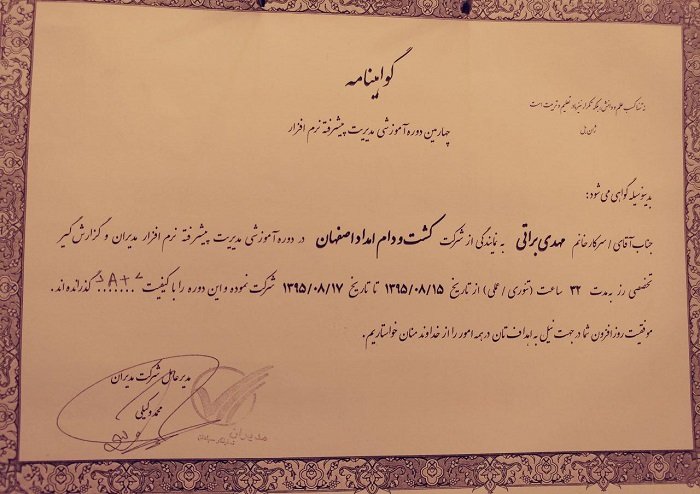 گواهینامه
نه تنها کسب علم و دانش بلکه تکرار بنیاد تعلیم و تربیت است
ژان پل
چهارمین دوره آموزشی مدیریت پیشرفته نرم افزار
بدینوسیله گواهی می شود:
جناب آقای / سرکار خانم مهدی براتی به نمایندگی از شرکت کشت و دام امداد اصفهان در دوره آموزشی مدیریت پیشرفته نرم افزار مدیران و گزارش گیر
تخصصی رز به مدت ۳۲ ساعت (تئوری / عملی) از تاریخ ۱۳۹۵/۰۸/۱۵ تا تاریخ ۱۳۹۵/۰۸/۱۷ شرکت نموده و این دوره را با کیفیت A+ گذرانده اند.
موفقیت روز افزون شما در جهت نیل به اهداف تان در همه امور را از خداوند منان خواستاریم.
مدیر عامل شرکت مدیران
محمد وکیلی
مدیران